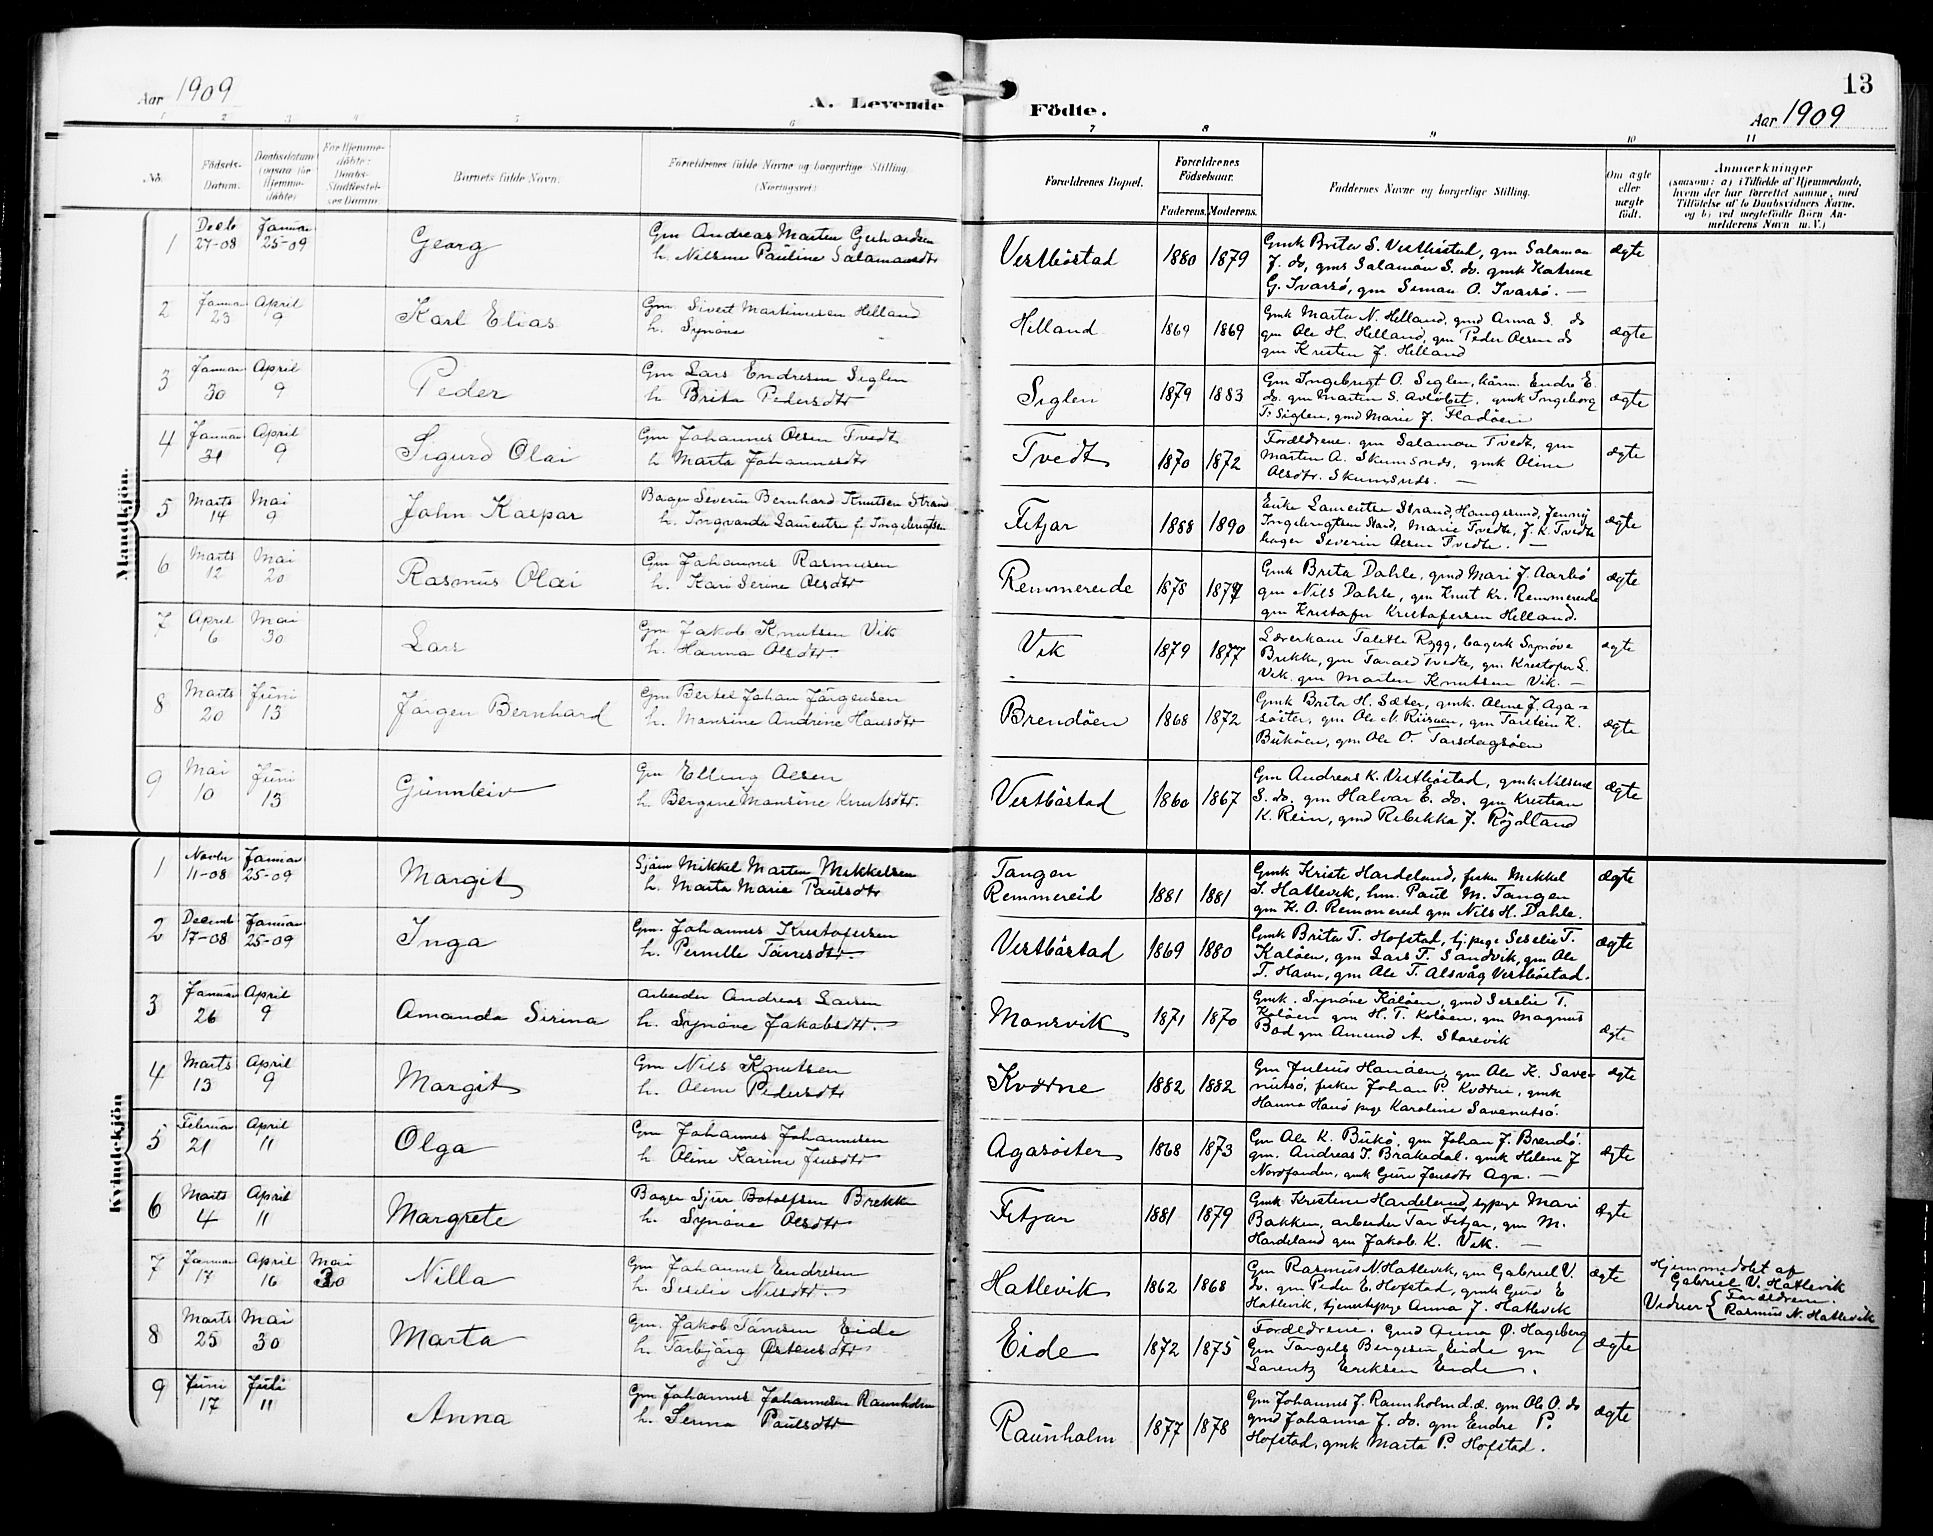 Aar 1909
A. Levende
Födte.
13
Aar 1909
1 2 3 4 5 6 7 8 9 10 11
No.
Födsels-
Datum.
Daabsdatum
(ogsaa för
Hjemme-
döbte)
For Hjemme-
döbte:
Daabs-
Stadfæstel-
ses Datum.
Barnets fulde Navn.
Forældrenes fulde Navne og borgerlige Stilling.
(Næringsvei)
Forældrenes Bopæl.
Forældrenes
Födselsaar.
Faderens. Moderens.
Faddernes Navne og borgerlige Stilling.
Om ægte
eller
uægte
födt.
Anmærkninger
(saasom: a) i Tilfælde af Hjemmedaab,
hvem der har forrettet samme, med
Tilföielse af to Daabsvidners Navne,
og b) ved uægtefödte Börn An-
melderens Navn m. V.)
Mandkjön.
1
Decb 27-08
Januar 25-09
Georg
Gm Andreas Marten Gerhardsen
h. Nilsine Pauline Salamonsdtr
Vestböstad
1880 1879
Gmk Brita S. Vestböstad, gm Salamon
J. do, gms Salamon S. do. gmk Katrine
G. Ivarsö, gm Simon O. Ivarsö. —
ægte
2
Januar 23
April 9
Karl Elias
Gm. Sivert Martinusen Helland
h. Synöve
Helland
1869 1869
Gmk Marta N. Helland, gmd Anna S. do
gm Ole H. Helland, gm Peder Olsen do
gm Kristen J. Helland
ægte
3
Januar 30
April 9
Peder
Gm Lars Endresen Siglen
h Brita Pedersdtr
Siglen
1879 1883
Gm Ingebrigt O. Siglen, kårm. Endre E.
do. gm Marten S. gmk Ingeborg
T. Siglen, gmd Marie J.
ægte
4
Januar 31
April 9
Sigurd Olai
Gm Johannes Olsen Tvedt
h Marta Johannesdtr
Tvedt
1870 1872
Forældrene. gm Salamon Tvedt, gm
Marten A. Skumsnes, gmk Oline
Olsdtr. Skumsnes. —
ægte
5
Marts 14
Mai 9
John Kaspar
Bager Severin Bernhard Knutsen Strand
h. Ingvarda Laurentse f. Ingebrigtsen
Fitjar
1888 1890
Enke Laurentse Strand, Haugesund, Jenny
Ingebrigtsen Stord, Marie Tvedte, J. K. Tvedte
bager Severin Olsen Tvedte. —
ægte
6
Marts 12
Mai 20
Rasmus Olai
Gm Johannes Rasmusen
h. Kari Serine Olsdtr
Remmereide
1878
Gmk Brita Dahle, gmd Mari J. Aarbö
gm Nils Dahle, gm Knut Kr. Remmereide
gm Kristofer Kristofersen Helland.
ægte
7
April 6
Mai 30
Lars
Gm Jakob Knutsen Vik
h. Hanna Olsdtr
Vik
1879 1877
Lærerkone Talette Rygg, bagerk Synöve
Brekke, gm Tarald Tvedte, gm Kristofer L.
Vik. gm Marten Knutsen Vik. —
ægte
8
Marts 20
Juni 13
Jörgen Bernhard
Gm Bertel Johan Jörgensen
h. Monsine Andrine Hansdtr
Brendöen
1868 1872
Gmk Brita H. Sæter, gmk. Oline J. Aga-
söster, gm Ole N. gm Torstein K.
Buköen, gm Ole O. Torsdagsöen
ægte
9
Mai 10
Juni 13
Gunnleiv
Gm Elling Olsen
h. Bergine Monsine Knutsdtr.
Vestböstad
1860 1867
Gm Andreas K. Vestböstad, gmk Nilsine
S. do. gm Halvar E. do. gm Kristian
K. Rein, gmd Rebekka J. Röydland
ægte
Kvindekjön
1
Novbr 11-08
Januar 25-09
Margit
Sjöm Mikkel Marten Mikkelsen
h. Marta Marie Paulsdtr
Tangen
Remmereid
1881 1881
Gmk Kriste Hardeland, fisker Mikkel
J. Hatlevik, hm. Paul M. Tangen
gm K. O. Remmereid gm Nils H. Dahle.
ægte
2
Decemb 17-08
Januar 25-09
Inga
Gm. Johannes Kristofersen
h. Pernille Tönnesdtr
Vestböstad
1869 1880
Gmk Brita T. Hofstad, tj.pige Seselie T.
Kalöen, gm Lars T. Sandvik, gm Ole
T. Havn, gm Ole T. Alsvåg Vestböstad.
ægte
3
Januar 26
April 9
Amanda Sirina
arbeider Andreas Larsen
h. Synöve Jakobsdtr.
Monsvik
1871 1870
Gmk. Synöve Kalöen, gmd Seselie T.
Kolöen gm H. T. Kolöen, gm Magnus
Bod gm Amund A. Storevik
ægte
4
Marts 13
April 9
Margit
Gm Nils Knutsen
h. Oline Pedersdtr
Kværne
1882 1882
Gm Julius Hanöen, gm Ole K. Save-
nutsö, fisker Johan P. Kværne, gmk
Hanna pige Karoline Savenutsö.
ægte
5
Februar 21
April 11
Olga
Gm Johannes Johannesen
h. Oline Karine Jensdtr
Agasöster
1868 1873
Gm Ole K. Bukö, gm Johan J. Brendö.
gm. Andreas J. Brakedal. gmk Helene J
gmk Guri Jensdtr Aga. —
ægte
6
Marts 4
April 11
Margrete
Bager Sjur Botolfsen Brekke
h. Synöve Olsdtr
Fitjar
1881 1879
Gmk Kristine Hardeland, sypige Mari
Bakken, arbeider Tor Fitjar, gm M.
Hardeland gm Jakob K. Vik. —
ægte
7
Januar 17
April 16
Mai 30
Nilla
Gm Johannes Endresen
h. Seselie Nilsdtr
Hatlevik
1862 1868
Gm Rasmus N Hatlevik, gm Gabriel V.
do. gm Peder E. Hofstad, gmk Guro E
Hatlevik, tjenestepige Anna J. Hatlevik
ægte
Hjemmedöbt af
Gabriel V. Hatlevik
Vidner { Forældrene.
Rasmus N. Hatlevik
8
Marts 25
Mai 30
Marta
Gm. Jakob Tönnesen Eide
h. Torbjörg Östensdtr
Eide
1872 1875
Forældrene. Gmd Anna Ö. Hageberg
Gm Tångels Bergesen Eide gm
Lorentz Eriksen Eide.
ægte
9
Juni 17
Juli 11
Anna
Gm Johannes Johannesen Raunholm
h. Serina Paulsdtr
Raunholm
1877 1878
Gm Johannes J. Raunholm d.æ. gm Ole O. do
gmd Johanna J. do. gm Endre P.
Hofstad, gmk Marta P. Hofstad.
ægte